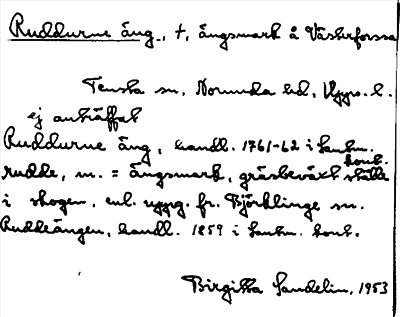 Ruddurne äng, †, ängsmark å Västerforssa
Tensta sn, Norunda hd, Upps. l.
ej anträffat
Ruddurne äng, handl. 1761-62 i Lantm. kont.
rudde, m. = ängsmark, gräsbeväxt ställe
i skogen, enl. uppg. fr. Björklinge sn.
Ruddeängen, handl. 1859 i Lantm. kont.
Birgitta Sandelin, 1953